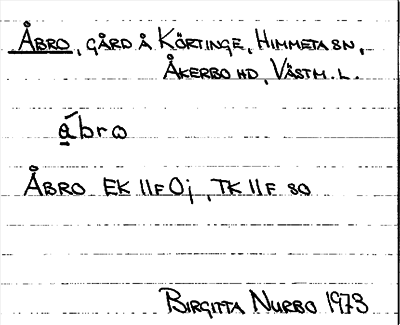 ÅBRO, GÅRD Å KÖRTINGE, HIMMETA SN,
ÅKERBO HD, VÄSTM. L.
ábro
ÅBRO EK 11F 0j, TK 11F SO
BIRGITTA NURBO 1973